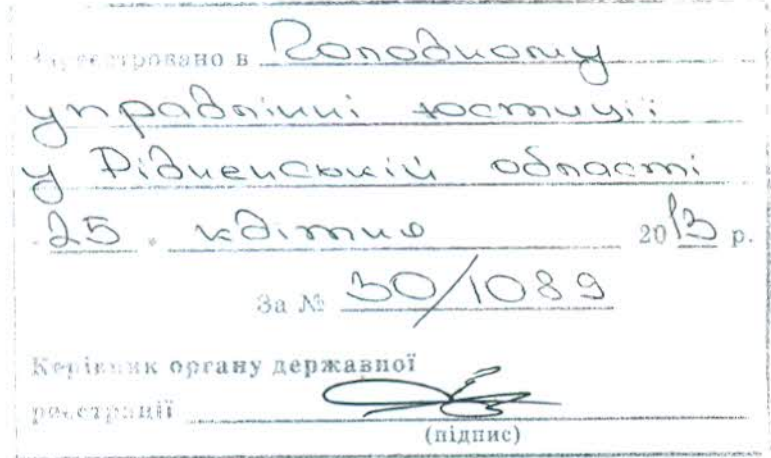 Зареєстровано в Головному
управлінні юстиції
у Рівненській області
"25" квітня 2013 р.
За № 30/1089
Керівник органу державної
реєстрації
(підпис)